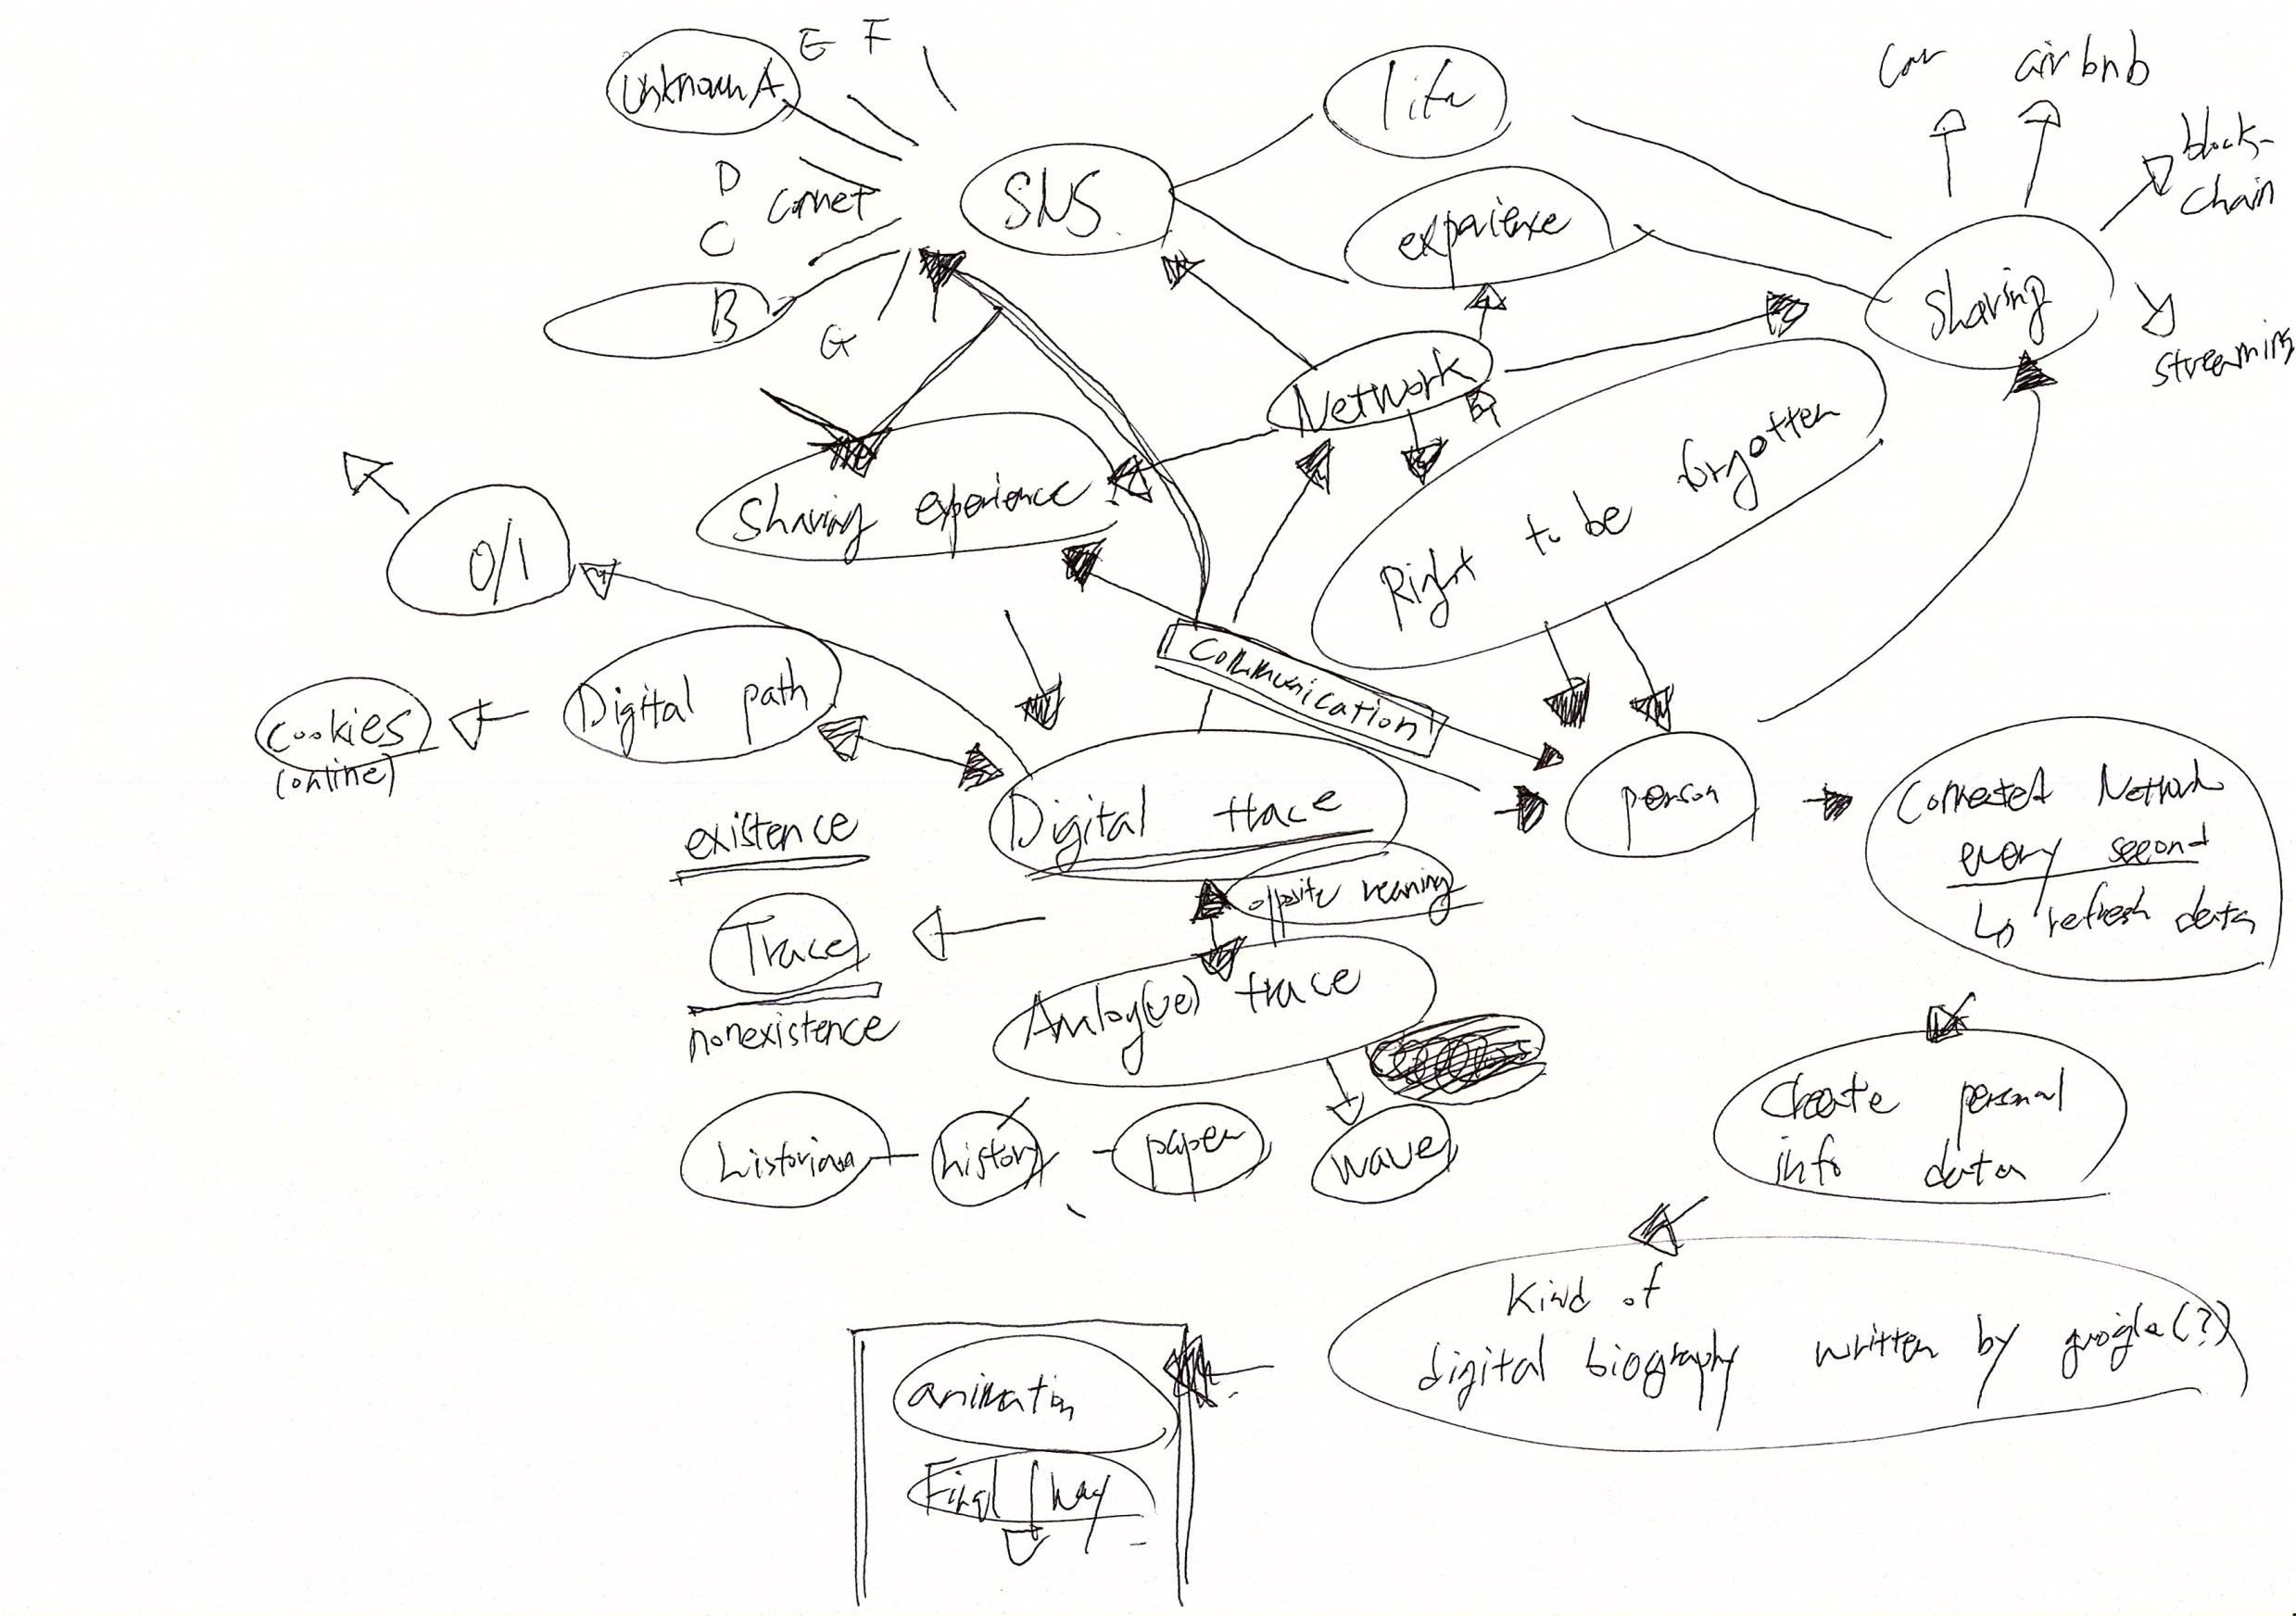 E F
unknown A
life
Car
airbnb
block-
chain
D
C
connet
SNS
expeirence
sharing
B
G
streaming
Network
Right to be forgotten
sharing experience
0/1
communication
Digital path
cookies
(online)
Digital trace
person
Connected Network
every second
↳ refresh data
existence
opposite meaning
Trace
nonexistence
Analog(ue) trace
Create personal
info data
historian
history
paper
wave
Kind of
digital biography written by google(?)
animation
Final